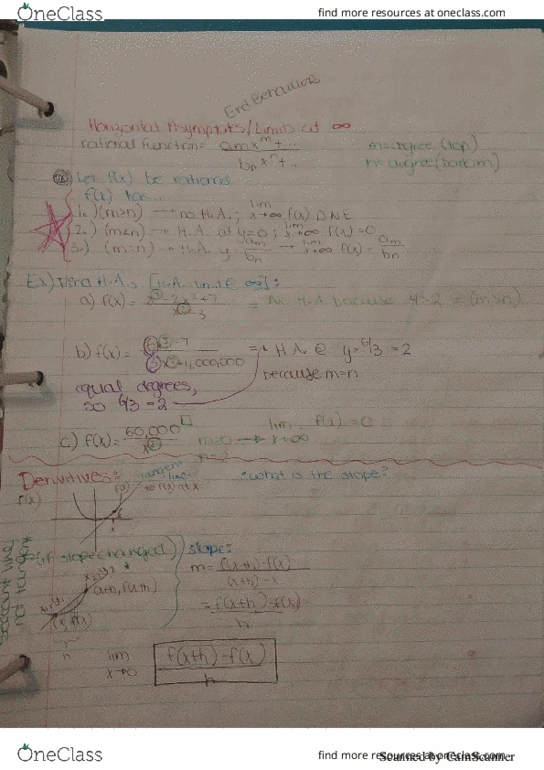 OneClass
find more resources at oneclass.com
End Behavior
Horizontal Asymptotes/Limits at ∞
rational function = amx^m+... / bnx^n+...
m=degree (top)
n=degree (bottom)
Let f(x) be rational
f(x) has...
1.) (m>n) → no H.A.; lim x→∞ f(x) DNE
2.) (m<n) → H.A. at y=0; lim x→∞ f(x)=0
3.) (m=n) → H.A. y= am/bn → lim x→∞ f(x)= am/bn
Ex) Find H.A. [H.A. limit @ ∞]:
a) f(x)= = No H.A because 4>2 = (m>n)
b) f(x)= H.A. @ y=6/3 =2
because m=n
equal degrees,
so 6/3 =2
c) f(x)= 60,000 m=0 → lim x→∞ f(x)=0
n=2
Derivatives:
tangent line
what is the slope?
f(x)
slope:
secant line
not tangent
x2,y2
(x+h, f(x+h))
x1,y1
(x, f(x))
h
m= f(x+h)-f(x) /
= f(x+h)-f(x) / h
lim x→0 f(x+h)-f(x) / h
OneClass
find more resources at oneclass.com
Scanned by CamScanner